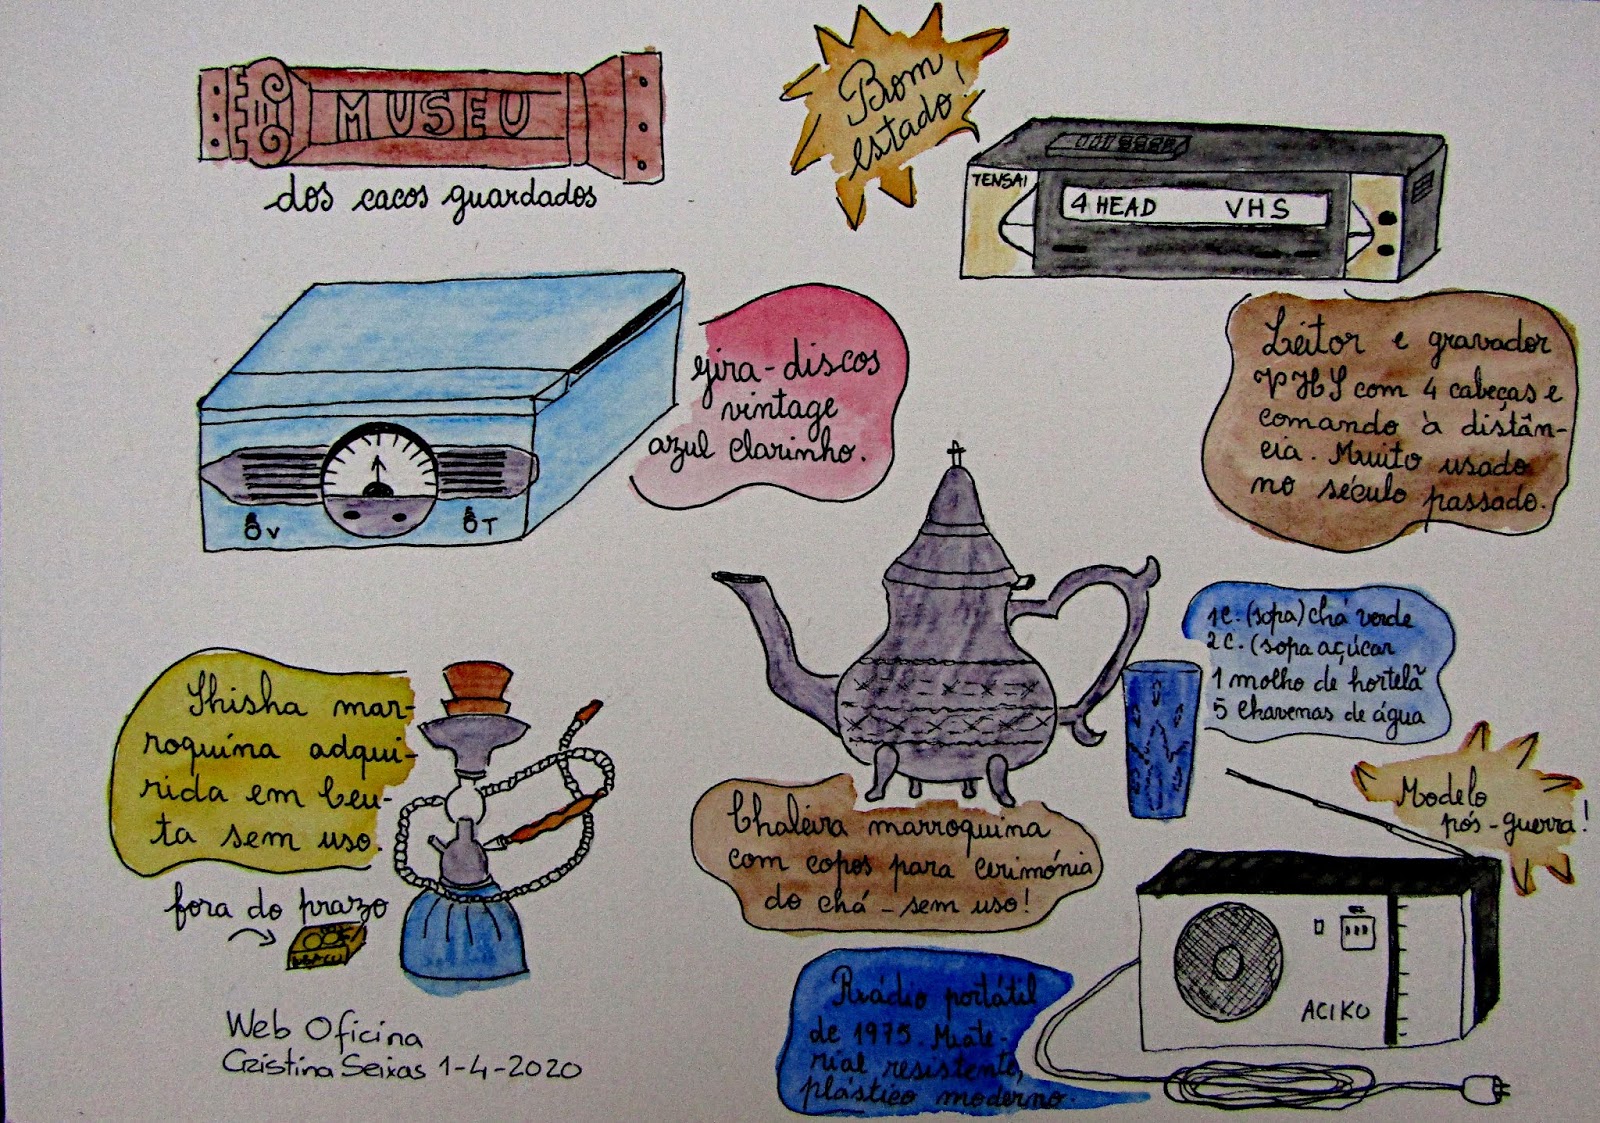 MUSEU
dos cacos guardados
Bom
estado!
TENSAI
4 HEAD VHS
gira-discos
vintage
azul clarinho.
V
T
Leitor e gravador
VHS com 4 cabeças e
comando à distân-
cia. Muito usado
no século passado.
1 c. (sopa) chá verde
2 c. (sopa açúcar
1 molho de hortelã
5 chavenas de água
Shisha mar-
roquina adqui-
rida em Ceu-
ta sem uso.
fora do prazo
Chaleira marroquina
com copos para cerimónia
do chá - sem uso!
Modelo
pós-guerra!
ACIKO
Rádio portátil
de 1975. Mate-
rial resistente,
plástico moderno.
Web Oficina
Cristina Seixas 1-4-2020